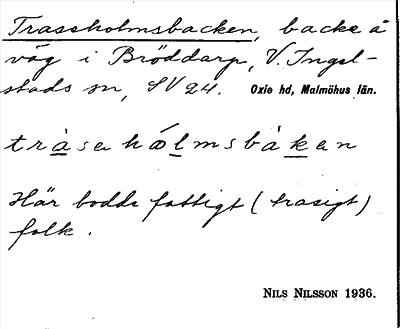 Trassholmsbacken, backe å
väg i Bröddarp, V. Ingel-
stads sn, SV 24. Oxie hd, Malmöhus län.
tràsahólmsbàkan
Här bodde fattigt (trasigt)
folk.
NILS NILSSON 1936.